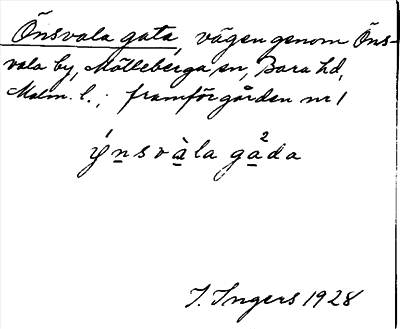 Önsvala gata, vägen genom Öns-
vala by, Mölleberga sn, Bara hd,
Malm. l.; framför gården nr 1
ýnsvàla gå²da
I. Ingers 1928